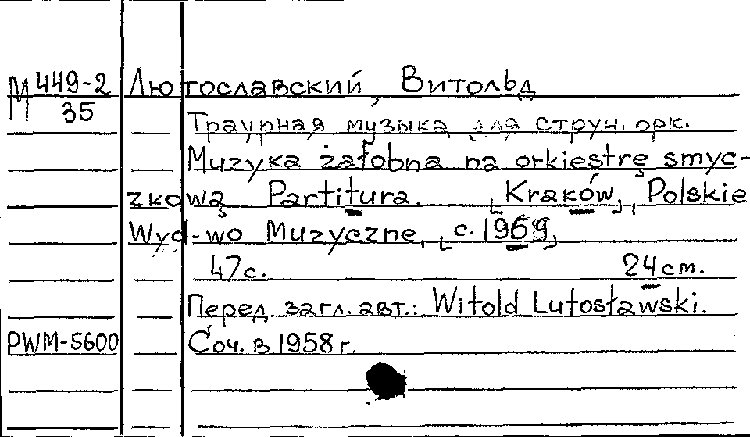 М 449-2 Лютославский, Витольд
35
Траурная музыка для струн. орк.
Muzyka żałobna na orkiestrę smycz-
zkową Partitura. [Kraków], Polskie
Wyd-wo Muzyczne, [c. 1969]
47с. 24см.
Перед загл. авт.: Witold Lutosławski.
PWM-5600 Соч. в 1958 г.